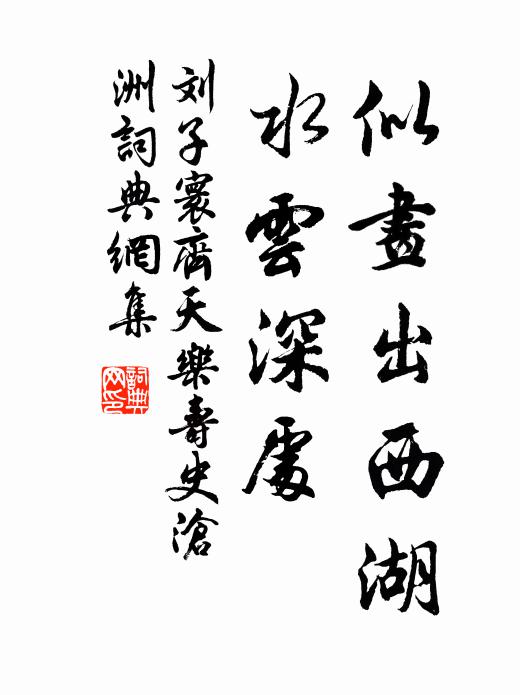 似畫出西湖
水雲深處
刘子寰齊天樂壽史滄
洲詞典網集
詞典
网印